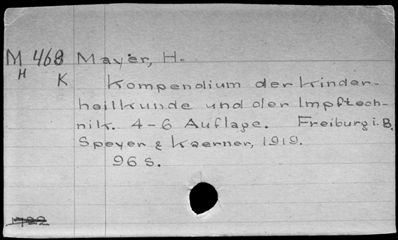 M 468 Mayer, H.
H
K Kompendium der Kinder-
heilkunde und der Impftech-
nik. 4-6 Auflage. Freiburg i. B.
Speyer & Kaerner, 1919.
96 s.